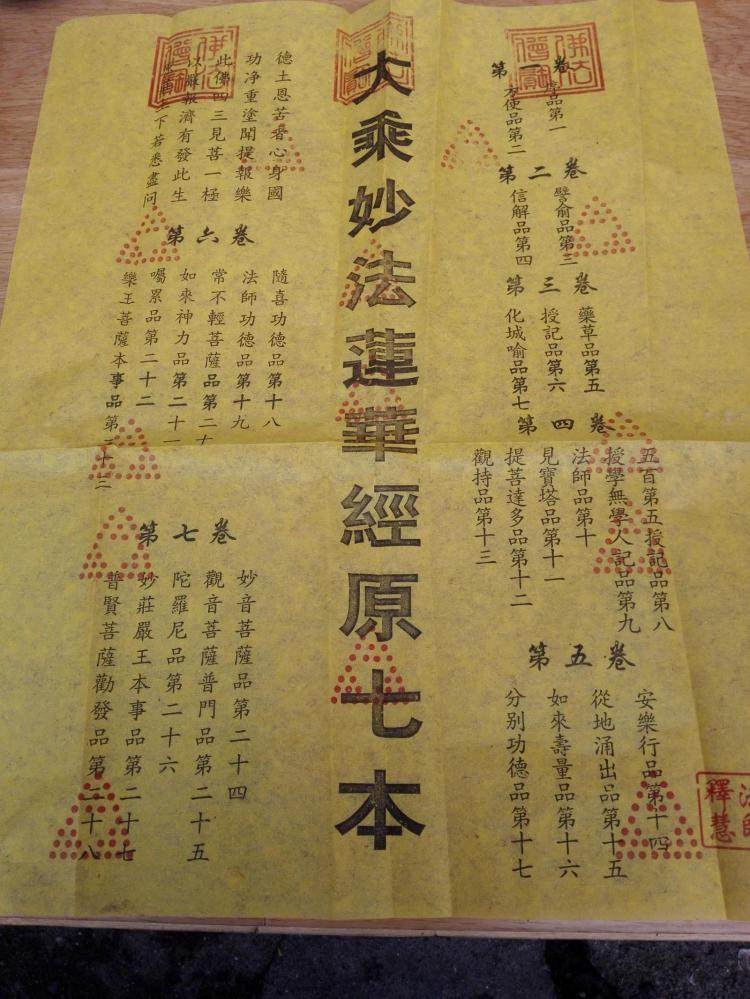 第一卷
序品第一
方便品第二
第二卷
譬俞品第三
信解品第四
第三卷
藥草品第五
授記品第六
化城喻品第七
第四卷
五百第五授記品第八
授學無學人記品第九
法師品第十
見寶塔品第十一
提菩達多品第十二
觀持品第十三
第五卷
安樂行品第十四
從地涌出品第十五
如來壽量品第十六
分別功德品第十七
大乘妙法蓮華經原七本
德土恩苦者心身國
功净重塗聞提報樂
此佛四三見菩一極
以報濟有發此生
上下若悉盡同
第六卷
隨喜功德品第十八
法師功德品第十九
常不輕菩薩品第二十
如來神力品第二十一
囑累品第二十二
樂王菩薩本事品第二十三
第七卷
妙音菩薩品第二十四
觀音菩薩普門品第二十五
陀羅尼品第二十六
妙莊嚴王本事品第二十七
普賢菩薩勸發品第二十八
佛法僧寶
佛法僧寶
佛法僧寶
釋慧